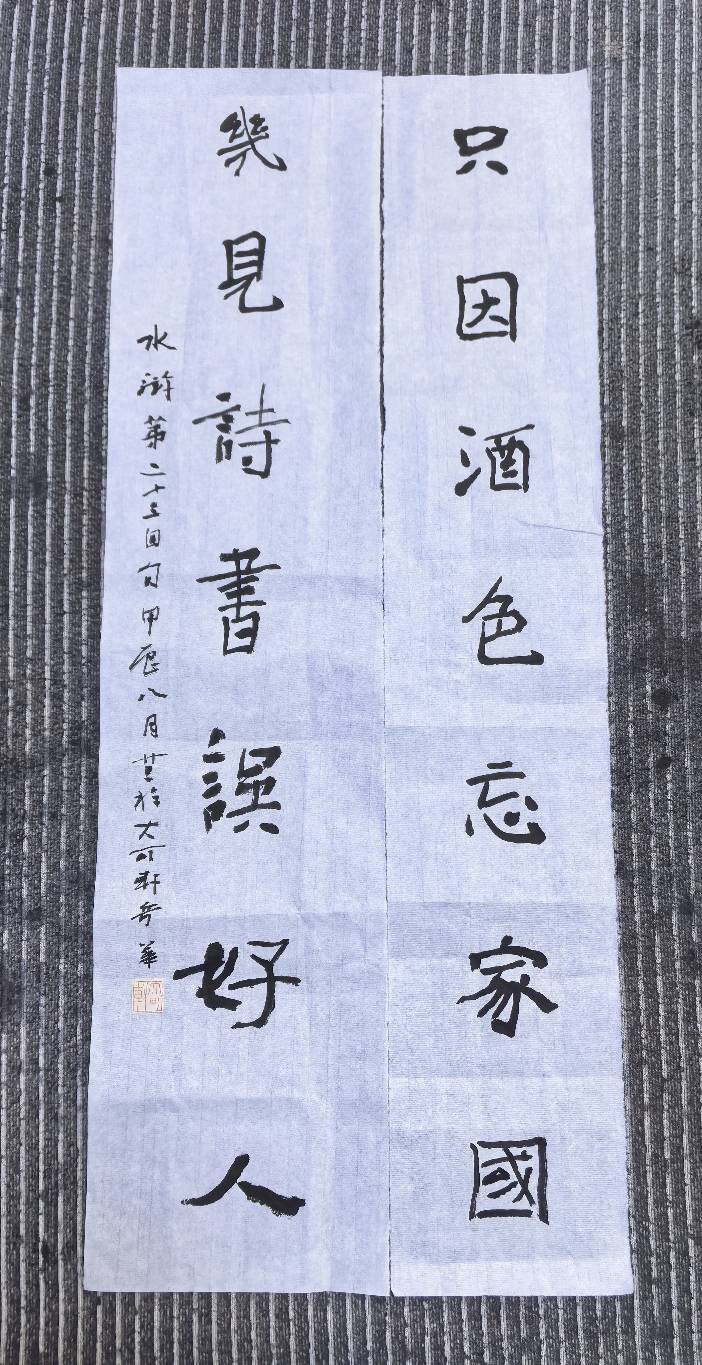 只因酒色忘家國
幾見詩書誤好人
水滸第二十三回句甲辰八月書於大可軒岳華